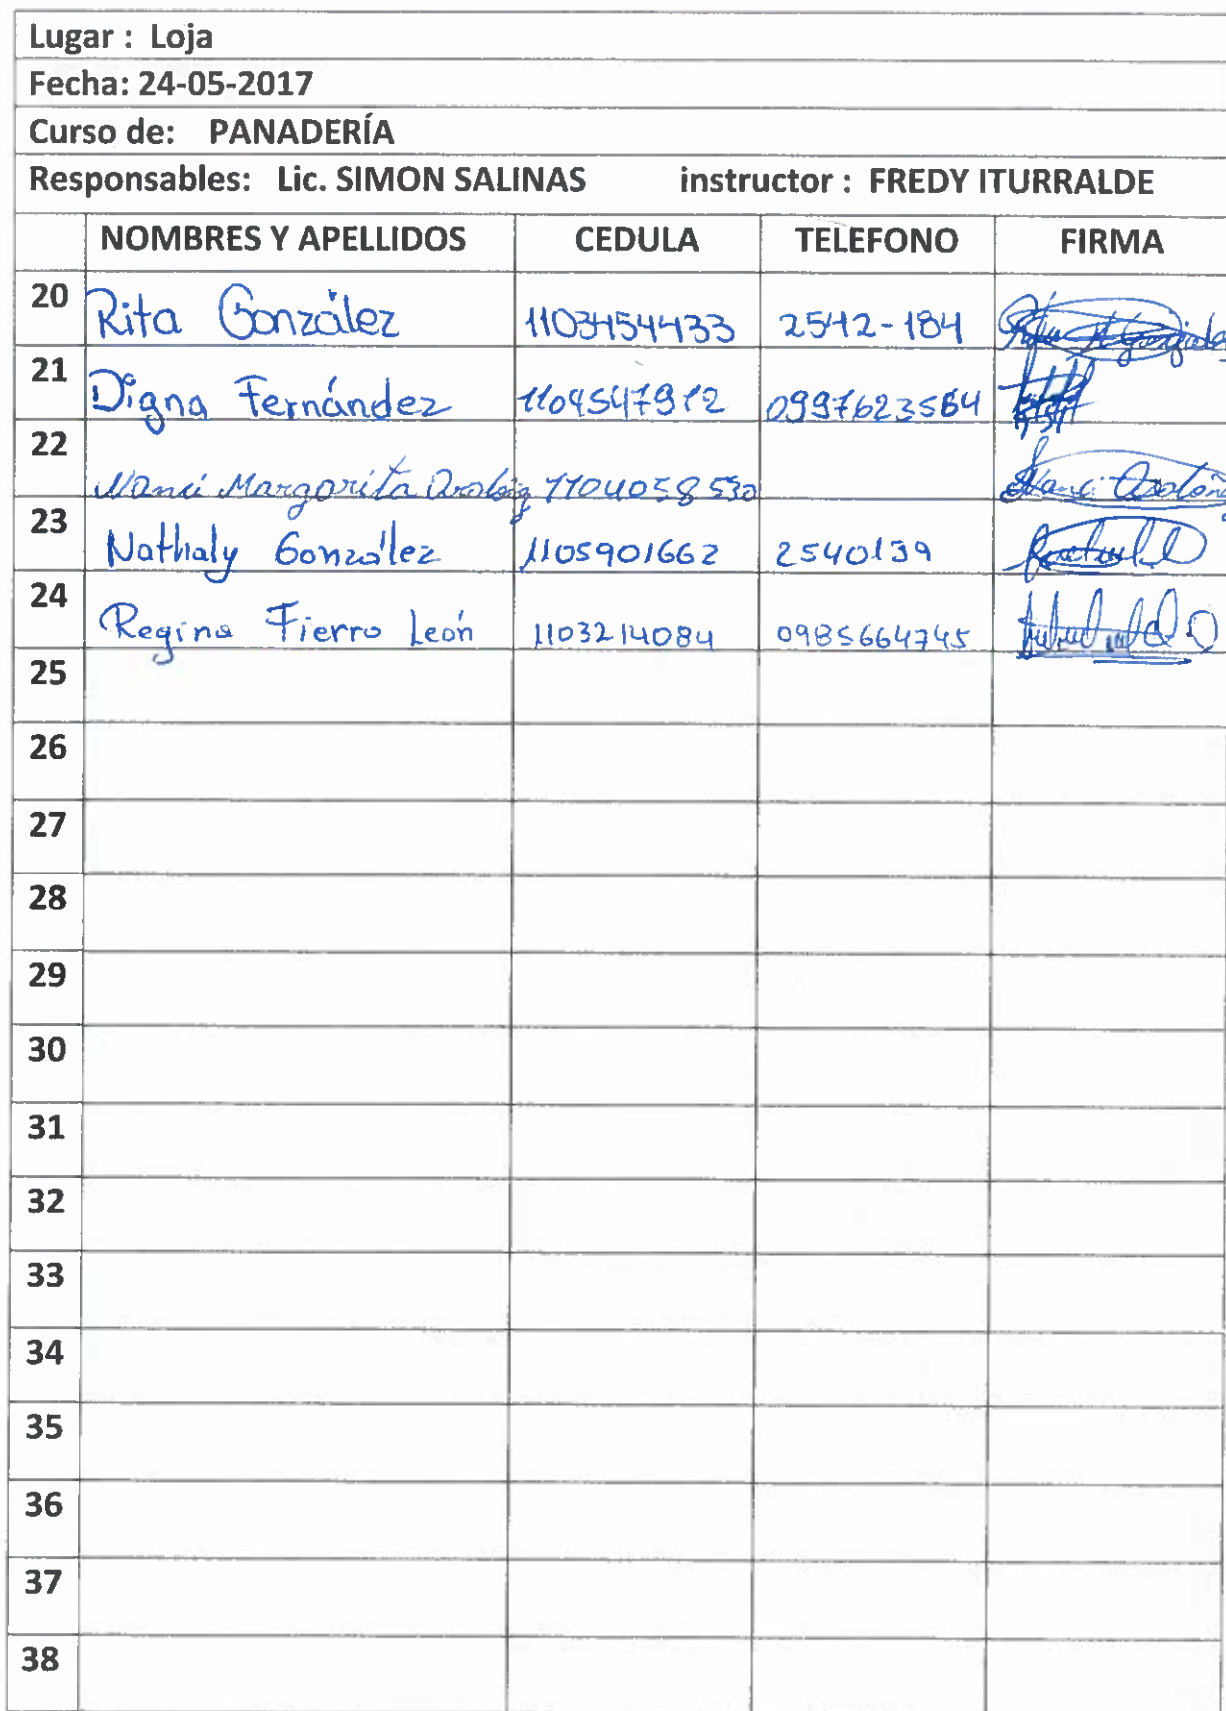 Lugar : Loja
Fecha: 24-05-2017
Curso de: PANADERÍA
Responsables: Lic. SIMON SALINAS instructor : FREDY ITURRALDE
NOMBRES Y APELLIDOS CEDULA TELEFONO FIRMA
20 Rita González 1103454433 2542-184
21 Digna Fernández 1104547912 0997623564
22 Nanci Margarita 1104058530 Nanci
23 Nathaly González 1105901662 2540139
24 Regina Fierro León 1103214084 0985664745
25
26
27
28
29
30
31
32
33
34
35
36
37
38